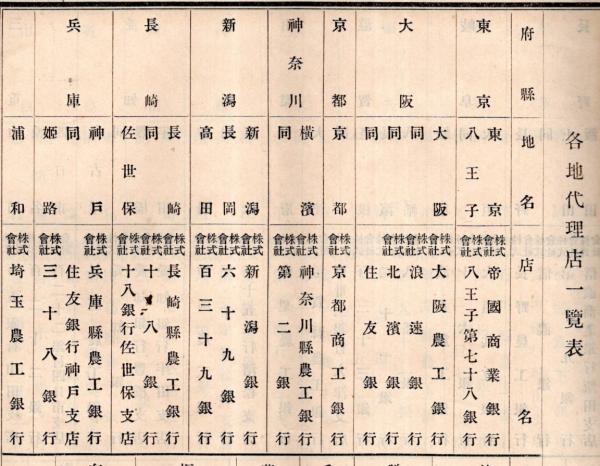 各地代理店一覽表
府縣 地名 店名
東京 東京 株式會社帝國商業銀行
八王子 株式會社八王子第七十八銀行
大阪 大阪 株式會社大阪農工銀行
同 株式會社浪速銀行
同 株式會社北濱銀行
同 住友銀行
京都 京都 株式會社京都商工銀行
神奈川 橫濱 株式會社神奈川縣農工銀行
同 株式會社第二銀行
新潟 新潟 株式會社新潟銀行
長岡 株式會社六十九銀行
高田 株式會社百三十九銀行
長崎 長崎 株式會社長崎縣農工銀行
同 株式會社十八銀行
佐世保 株式會社十八銀行佐世保支店
兵庫 神戶 株式會社兵庫縣農工銀行
同 住友銀行神戶支店
姬路 株式會社三十八銀行
浦和 株式會社埼玉農工銀行